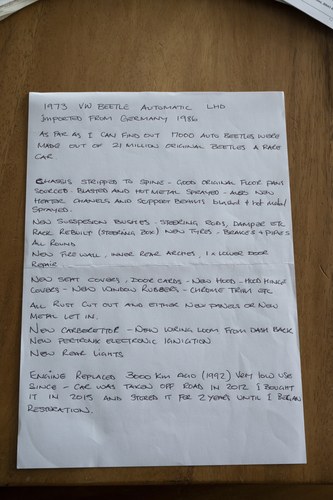 1973 VW BEETLE AUTOMATIC LHD
IMPORTED FROM GERMANY 1986
AS FAR AS I CAN FIND OUT 17000 AUTO BEETLES WERE
MADE OUT OF 21 MILLION ORIGINAL BEETLES A RARE
CAR
CHASSIS STRIPPED TO SPINE - GOOD ORIGINAL FLOOR PANS
SOURCED - BLASTED AND HOT METAL SPRAYED - ALSO NEW
HEATER CHANELS AND SUPPORT BEHINDS blasted & hot metal
SPRAYED.
NEW SUSPENSION BUSHES - STEERING RODS, DAMPER ETC
RACK REBUILT (STEERING BOX) NEW TYRES - BRAKES & PIPES
ALL ROUND
NEW FIRE WALL, INNER REAR ARCHES, 1 x LOWER DOOR
REPAIR
NEW SEAT COVERS, DOOR CARDS - NEW HOODS -
COVERS - NEW WINDOW RUBBERS - CHROME TRIM ETC
ALL RUST CUT OUT AND EITHER NEW PANELS OR NEW
METAL LET IN.
NEW CARBERETTOR - NEW WIRING LOOM FROM DASH BACK
NEW PERTRONIX ELECTRONIC IGNICTION
NEW REAR LIGHTS
ENGINE REPLACED 3000 KM AGO (1992) VERY LOW USE
SINCE - CAR WAS TAKEN OFF ROAD IN 2012 I BOUGHT
IT IN 2015 AND STORED IT FOR 2 YEARS UNTIL I BEGAN
RESTORATION.